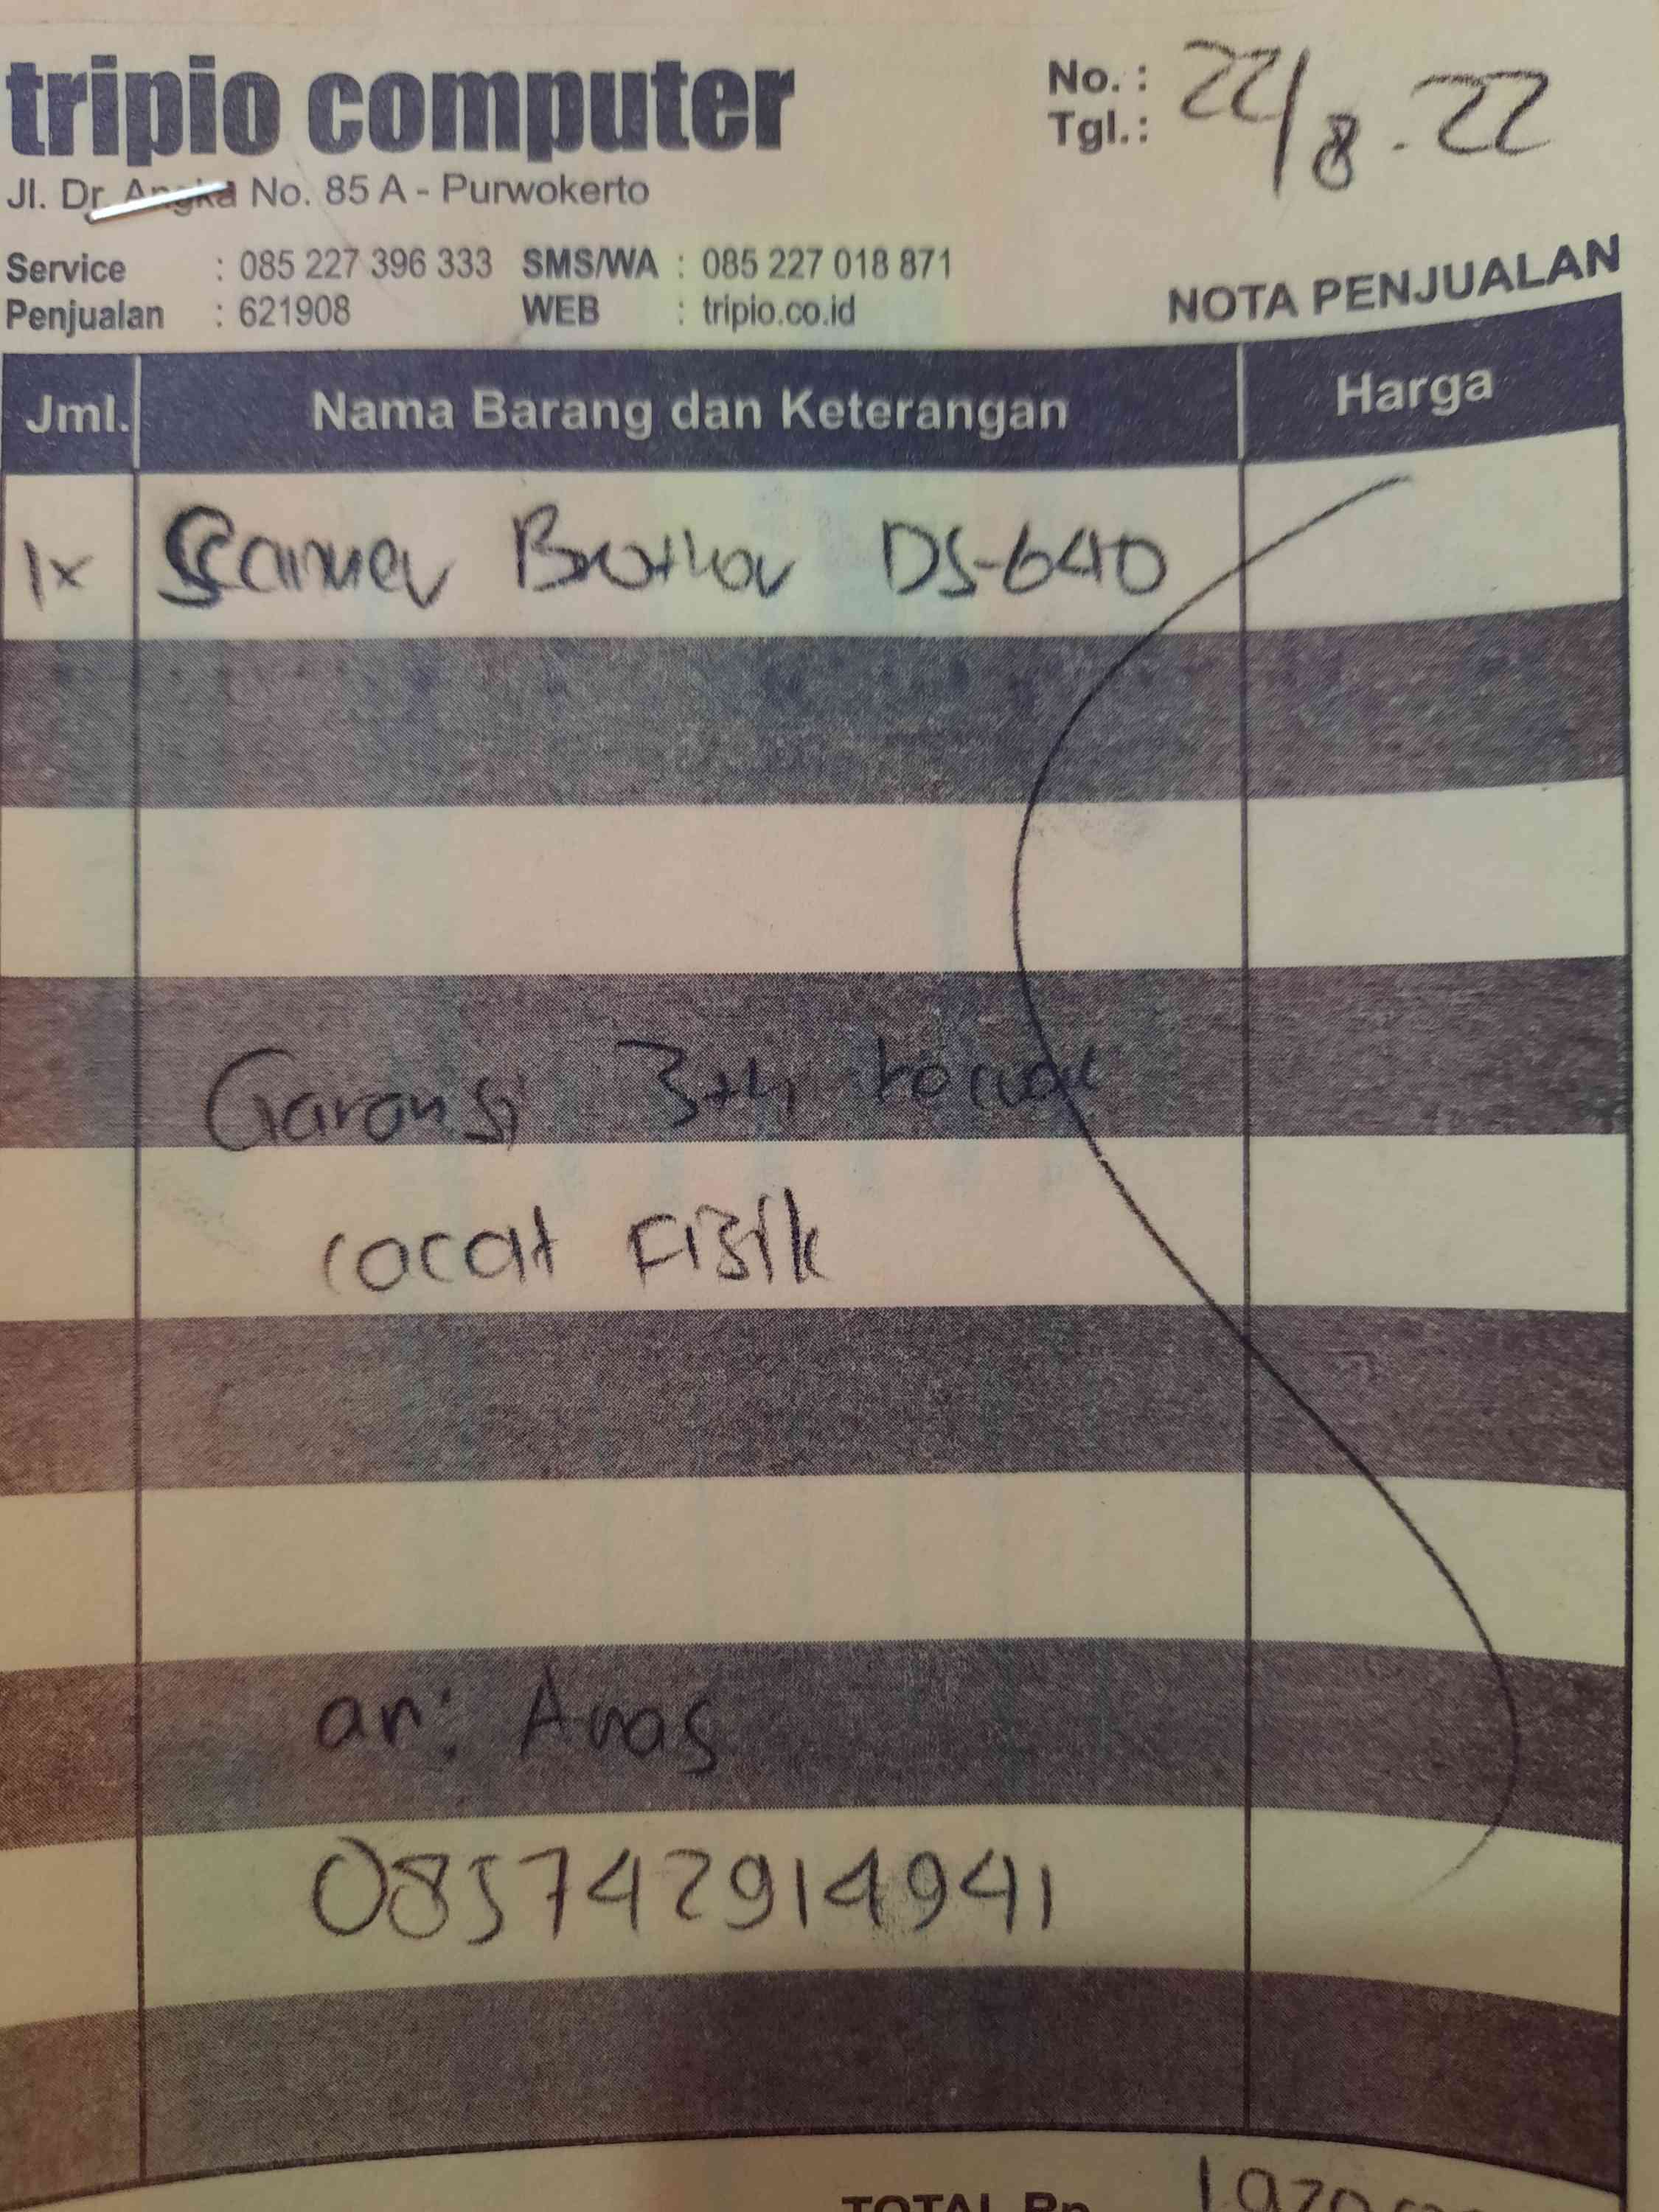 tripio computer
No. :
Tgl. : 22/8 - 22
Jl. Dr. Angka No. 85 A - Purwokerto
Service : 085 227 396 333 SMS/WA : 085 227 018 871
Penjualan : 621908 WEB : tripio.co.id
NOTA PENJUALAN
Jml. Nama Barang dan Keterangan Harga
1x Scanner Brother DS-640
Garansi 3th kecuali
cacat Fisik
an: Anas
085742914941
TOTAL Rp